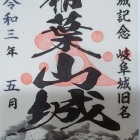 城記念 岐阜城旧名
稲葉山城
令和三年 五月